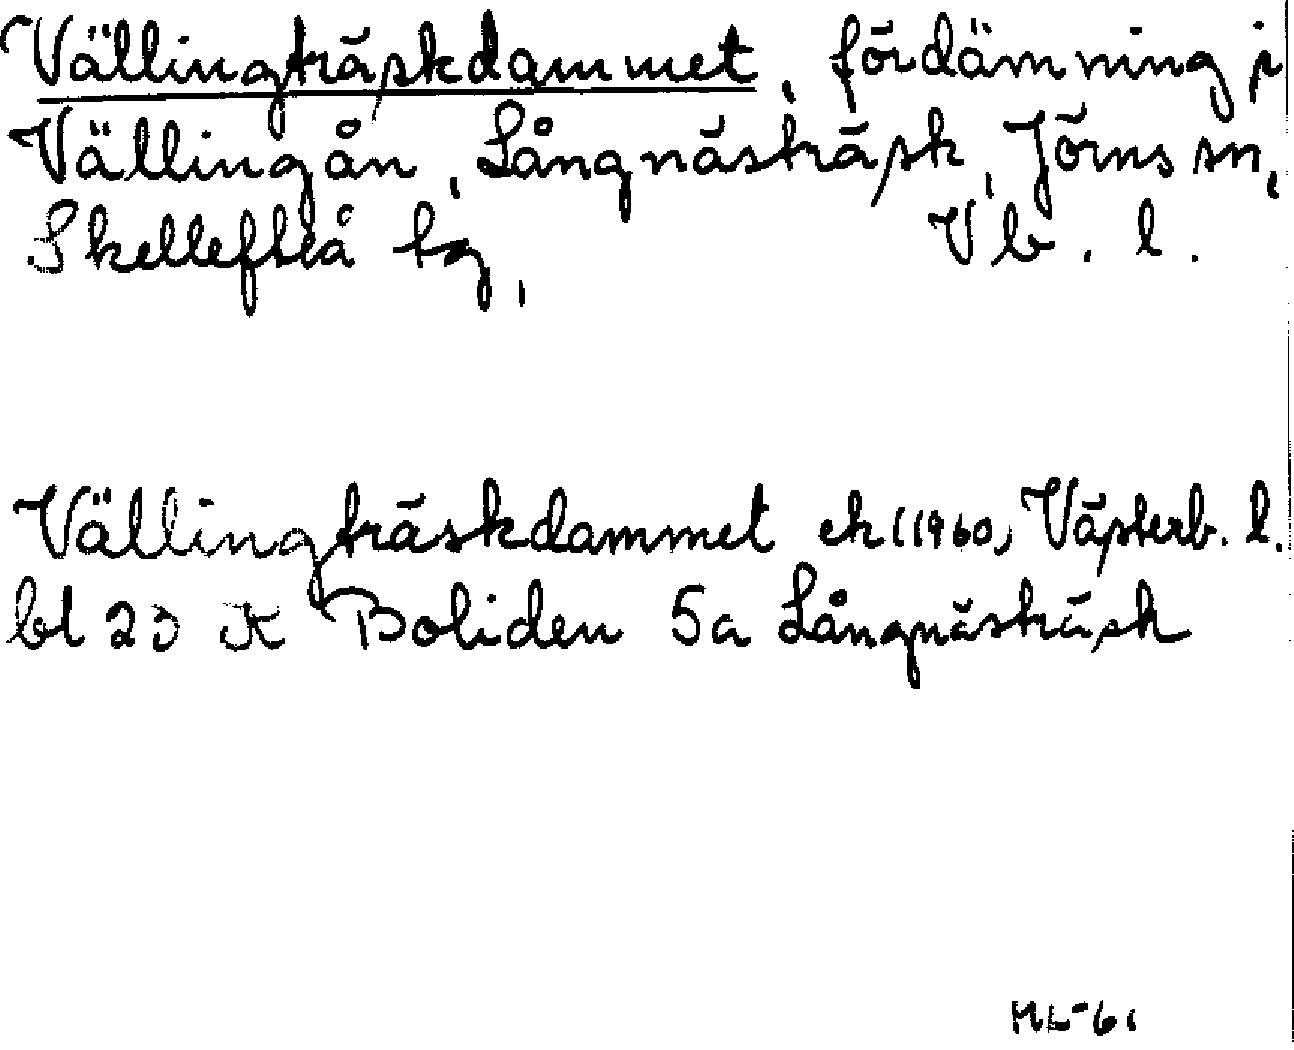 Vällingträskdammet, fördämning i
Vällingån, Långnästräsk, Jörns sn,
Skellefteå tg, Vb. l.
Vällingträskdammet ek (1960) Västerb. l.
bl 23 K Boliden 5a Långnästräsk
ML-61